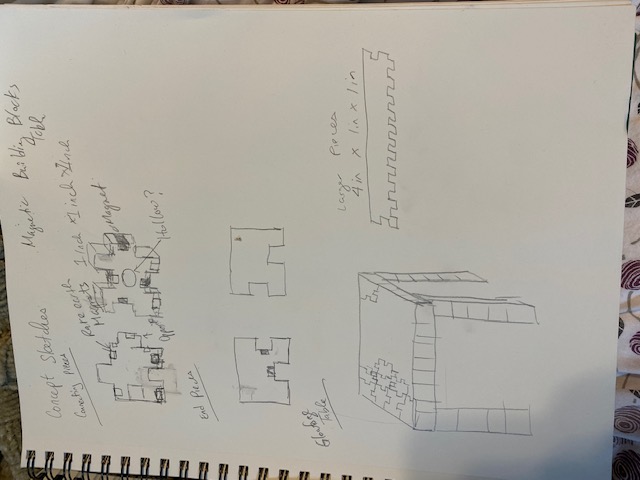 Concept Sketches
Magnetic Building Blocks
Table
Connecting Pieces
Rare earth
Magnets
1 inch x 1 inch x 1 inch
Magnet
Hollow?
End Pieces
Table
Larger Pieces
4in x 1in x 1in